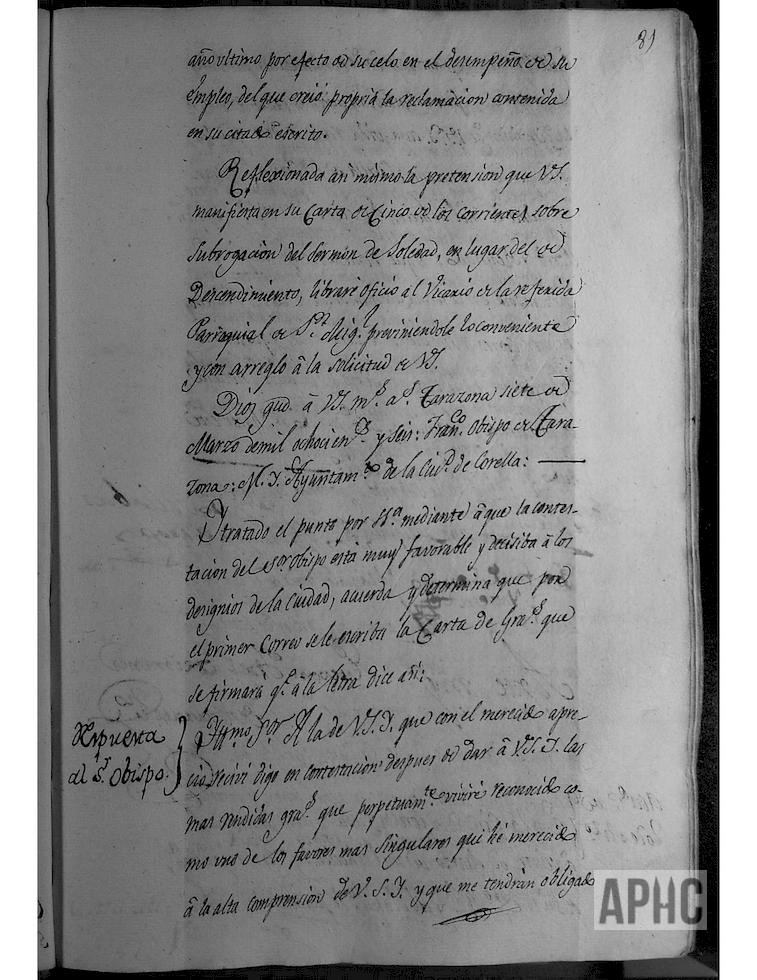 81
año ultimo por efecto de su celo en el desempeño de su
empleo, del que creió propria la reclamacion contenida
en su citado escrito.
Reflexionada asi mismo la pretension que VS.
manifiesta en su Carta de Cinco de los corrientes sobre
Subrogacion del Sermon de Soledad, en lugar del de
Descendimiento, libraré oficio al Vicario de la referida
Parroquial de Sn. Migl. previniendole lo conveniente
y con arreglo â la solicitud de VS.
Dios gue. â VS. ms. as. Tarazona siete de
Marzo de mil ochocients. y seis: Franco. Obispo de Tara-
zona: M. Y. Ayuntamto. de la Ciud. de Corella:
Y tratado el punto por mediante â que la contes-
tacion del Sor. Obispo está muy favorable y decisiba â los
designios de la Ciudad, acuerda y determina que por
el primer Correo se le escriba la Carta de Gras. que
se firmará qe. â la letra dice asi:
Respuesta
al Sr. Obispo.
Yllmo. Sor. A la de V.S.Y. que con el merecido apre-
cio recivi digo en contestacion despues de dar â V.S.Y. las
mas rendidas gras. que perpetuamte. viviré reconocido co-
mo uno de los favores mas singulares que hé merecido
â la alta comprension de V.S.Y. y que me tendrán obligado
APHC